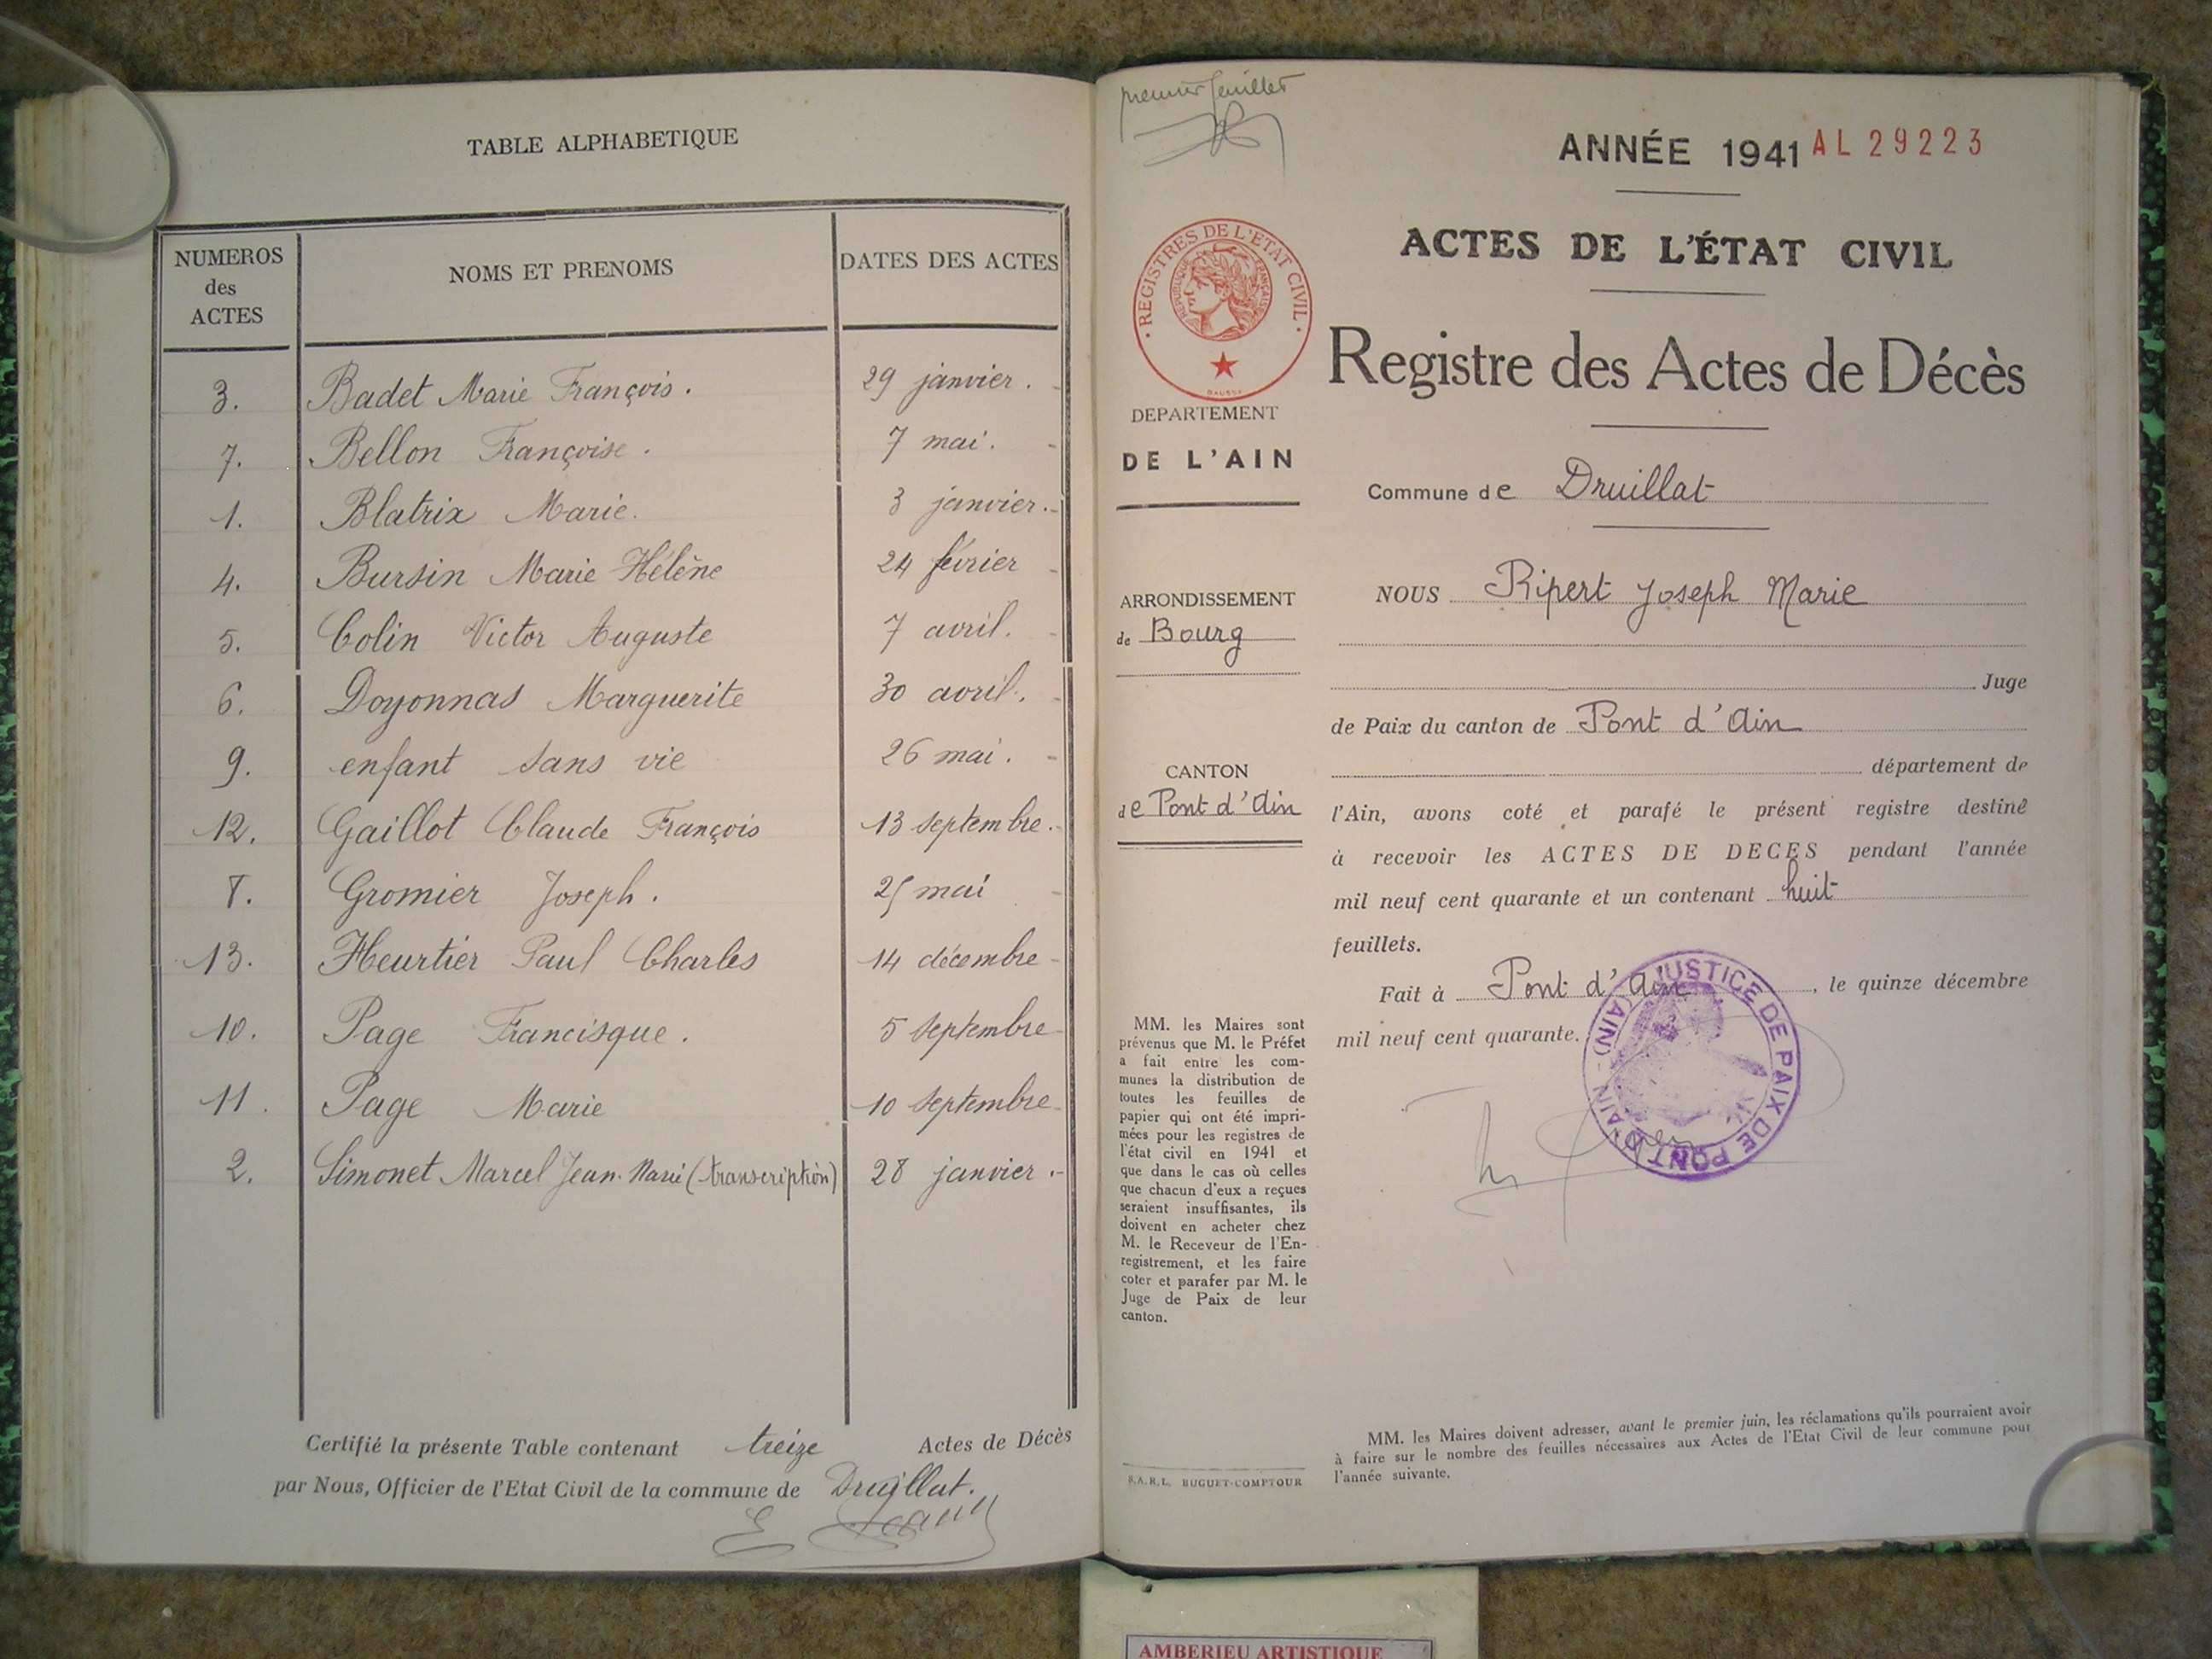 TABLE ALPHABETIQUE
NUMEROS des ACTES NOMS ET PRENOMS DATES DES ACTES
3. Badet Marie François. 29 janvier.
7. Bellon Françoise. 7 mai.
1. Blatrix Marie. 3 janvier.
4. Bursin Marie Hélène 24 février
5. Colin Victor Auguste 7 avril.
6. Doyonnas Marguerite 30 avril.
9. enfant sans vie 26 mai.
12. Gaillot Claude François 13 septembre.
8. Gromier Joseph. 25 mai
13. Heurtier Paul Charles 14 décembre
10. Page Francisque. 5 septembre
11. Page Marie 10 septembre
2. Simonet Marcel Jean-Marie (transcription) 28 janvier.
Certifié la présente Table contenant treize Actes de Décès
par Nous, Officier de l'Etat Civil de la commune de Druillat.
premier feuillet
ANNÉE 1941 AL 29223
REGISTRES DE L'ETAT CIVIL
REPUBLIQUE FRANÇAISE
ACTES DE L'ÉTAT CIVIL
Registre des Actes de Décès
DEPARTEMENT
DE L'AIN
ARRONDISSEMENT
de Bourg
CANTON
de Pont d'Ain
MM. les Maires sont
prévenus que M. le Préfet
a fait entre les com-
munes la distribution de
toutes les feuilles de
papier qui ont été impri-
mées pour les registres de
l'état civil en 1941 et
que dans le cas où celles
que chacun d'eux a reçues
seraient insuffisantes, ils
doivent en acheter chez
M. le Receveur de l'En-
registrement, et les faire
coter et parafer par M. le
Juge de Paix de leur
canton.
S.A.R.L. BUGUET-COMPTOUR
Commune de Druillat
NOUS Ripert Joseph Marie
Juge
de Paix du canton de Pont d'Ain
département de
l'Ain, avons coté et parafé le présent registre destiné
à recevoir les ACTES DE DECES pendant l'année
mil neuf cent quarante et un contenant huit
feuillets.
Fait à Pont d'Ain, le quinze décembre
mil neuf cent quarante.
JUSTICE DE PAIX DE PONT D'AIN (AIN)
MM. les Maires doivent adresser, avant le premier juin, les réclamations qu'ils pourraient avoir
à faire sur le nombre des feuilles nécessaires aux Actes de l'Etat Civil de leur commune pour
l'année suivante.
AMBERIEU ARTISTIQUE